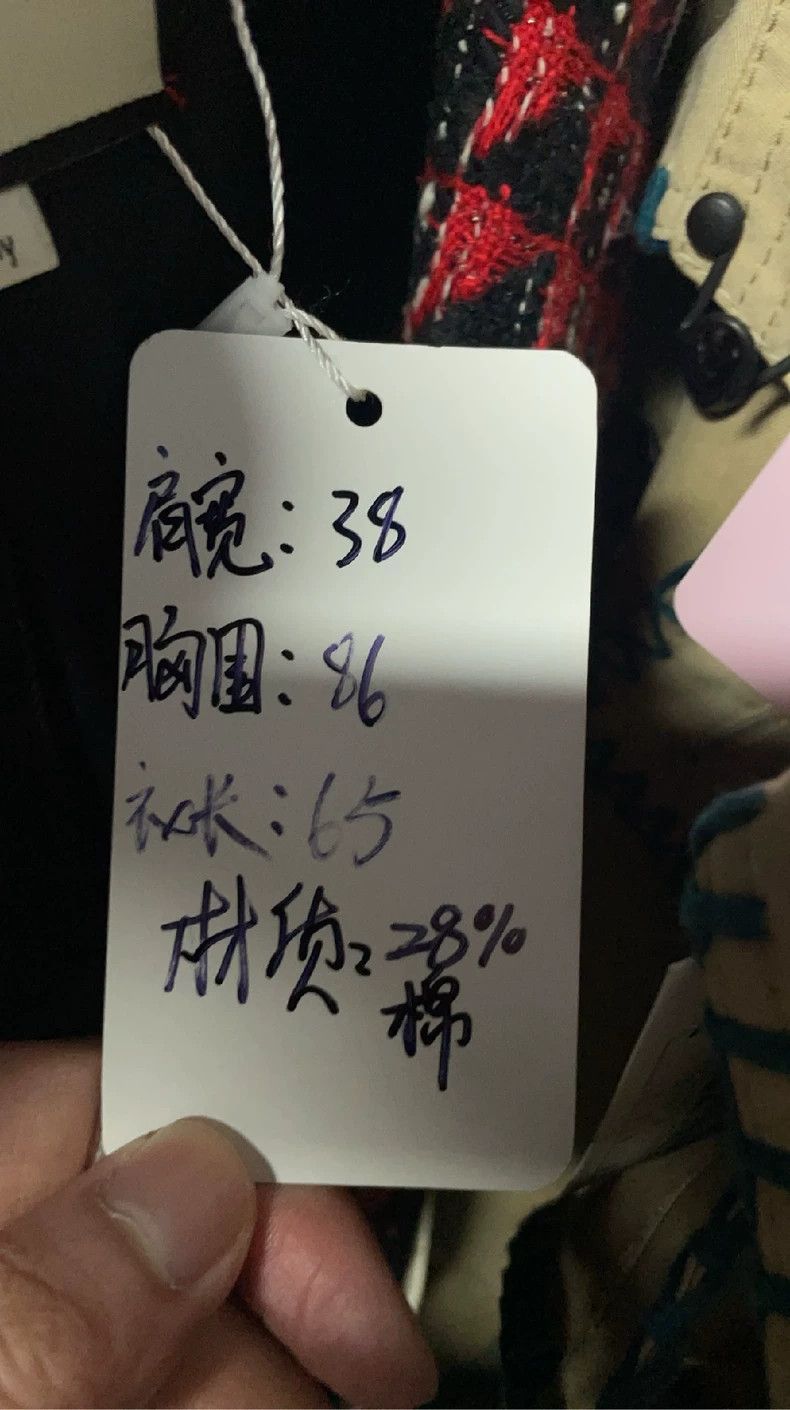 肩宽：38
胸围：86
衣长：65
材质：28%
棉